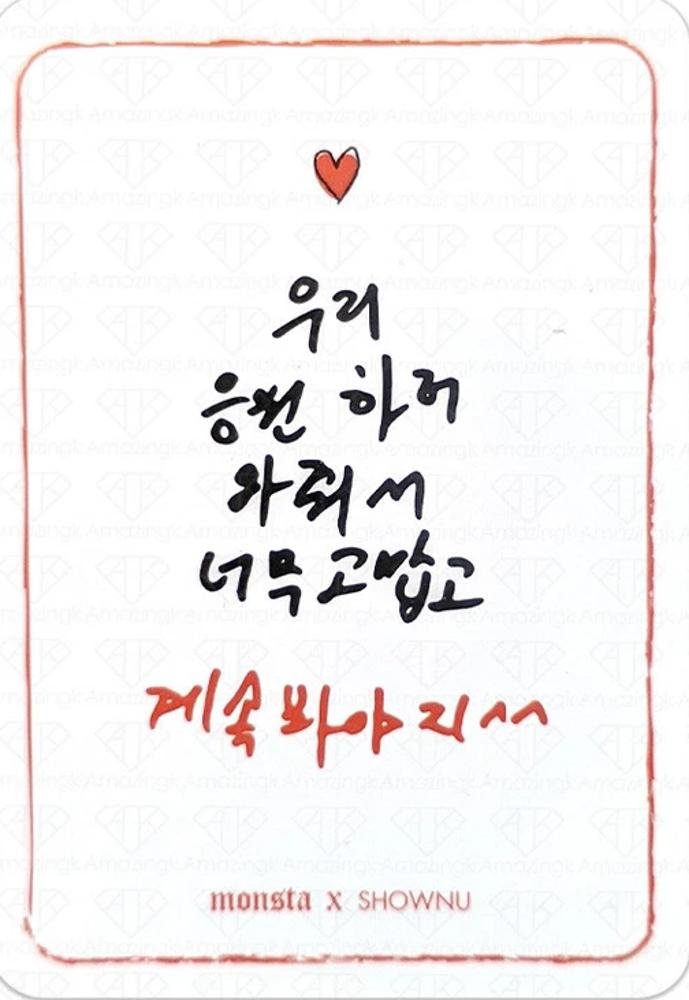 우리
응원 하러
와줘서
너무 고맙고
계속 봐야지 ^^
monsta x SHOWNU